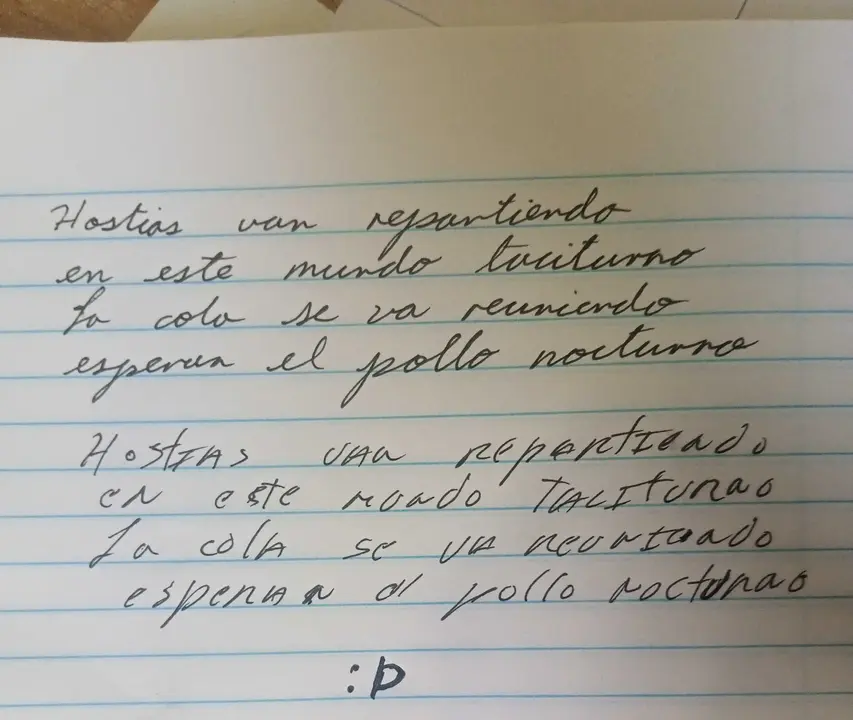 Hostias van repartiendo
en este mundo taciturno
La cola se va reuniendo
esperan el pollo nocturno
HostIAs VAn repartIendo
en este mundo TAcITurno
La colA se VA reunIendo
esperAn el pollo nocturno
:p